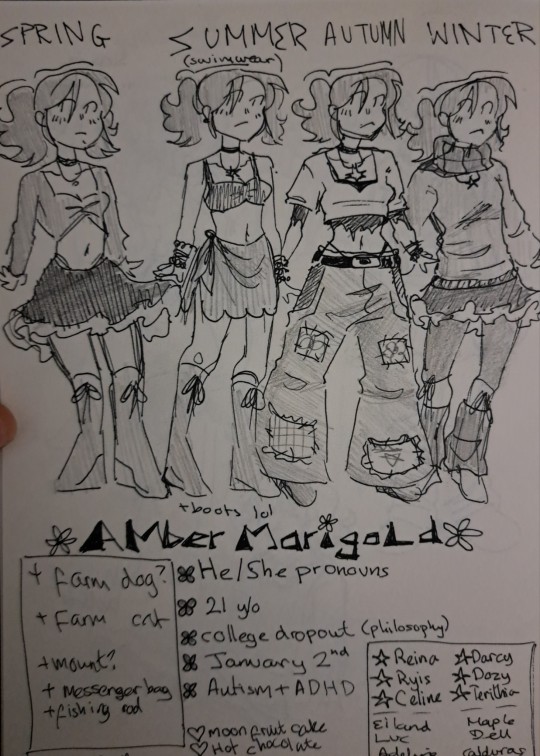 SPRING SUMMER AUTUMN WINTER
(swimwear)
+boots lol
AMber MarigoLd
+ farm dog?
+ Farm cat
+mount?
+ messenger bag
+fishing rod
He/She pronouns
21 y/o
college dropout (philosophy)
January 2nd
Autism + ADHD
♡ moonfruit cake
♡ Hot chocolate
☆ Reina ☆ Darcy
☆ Ryis ☆ Dozy
☆ Celine ☆ Terithia
Eiland Maple
Luc Dell